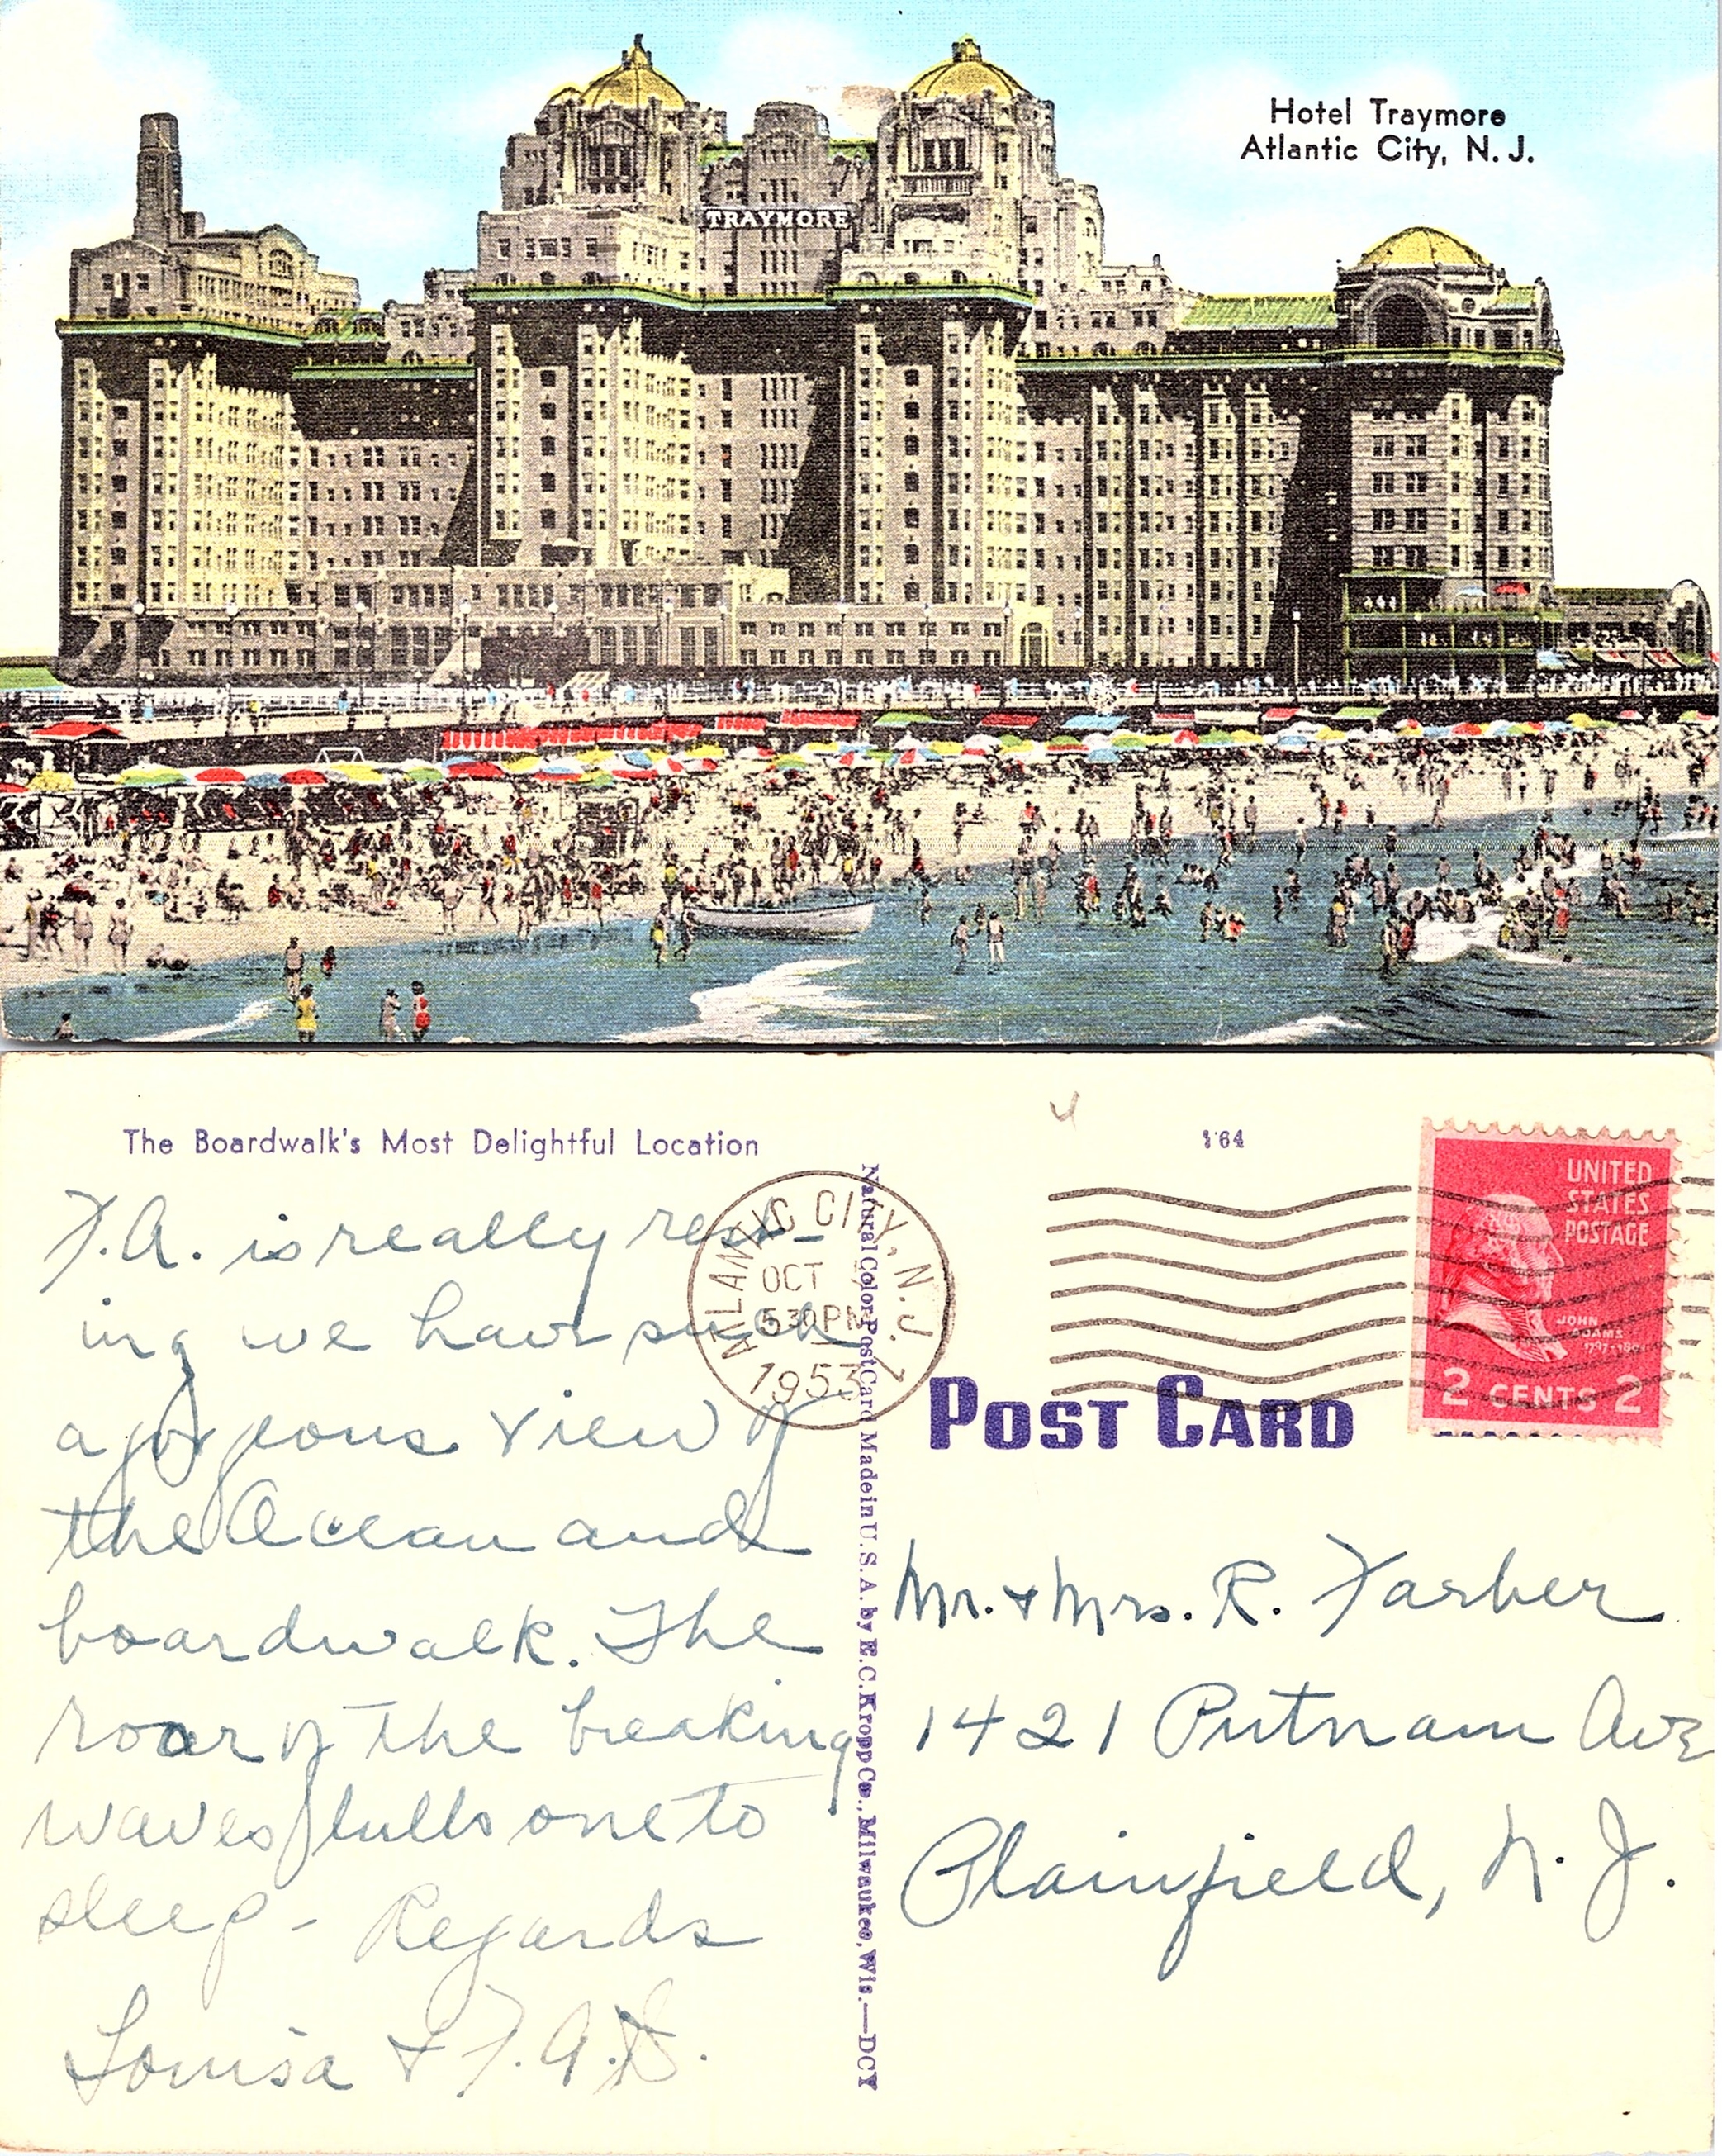 Hotel Traymore
Atlantic City, N. J.
TRAYMORE
The Boardwalk's Most Delightful Location
F.A. is really rest-
ing we have such
a gorgeous view of
the Ocean and
boardwalk. The
roar of the breaking
waves lulls one to
sleep - Regards
Louisa & F.A.D.
Natural Color Post Card Made in U. S. A. by E. C. Kropp Co., Milwaukee, Wis.—DCY
ATLANTIC CITY, N. J.
OCT
530 PM
1953
164
UNITED
STATES
POSTAGE
JOHN
ADAMS
2 CENTS 2
POST CARD
Mr. & Mrs. R. Farber
1421 Putnam Ave
Plainfield, N. J.